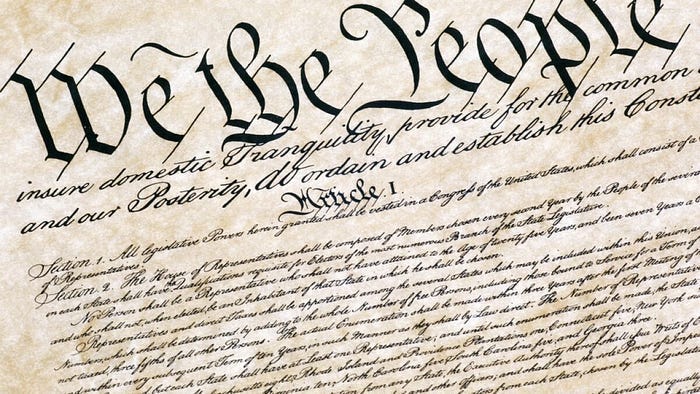 We the People
insure domestic Tranquility, provide for the common
and our Posterity, do ordain and establish this Const
Article I.
Section 1. All legislative Powers herein granted shall be vested in a Congress of the United States, which shall consist of a
of Representatives.
Section 2. The House of Representatives shall be composed of Members chosen every second Year by the People of the several
in each State shall have Qualifications requisite for Electors of the most numerous Branch of the State Legislature.
No Person shall be a Representative who shall not have attained to the Age of twenty five Years, and been seven Years a
and who shall not, when elected, be an Inhabitant of that State in which he shall be chosen.
Representatives and direct Taxes shall be apportioned among the several States which may be included within this Union,
Numbers, which shall be determined by adding to the whole Number of free Persons, including those bound to Service for a Term of
not taxed, three fifths of all other Persons. The actual Enumeration shall be made within three Years after the first Meeting of
and within every subsequent Term of ten Years, in such Manner as they shall by Law direct. The Number of Representatives
but each State shall have at Least one Representative; and until such enumeration shall be made, the State
eight, Rhode Island and Providence Plantations one, Connecticut five, New York
ten, North Carolina five, South Carolina five, and Georgia three.
from any State, the Executive Authority thereof shall issue Writs of
and other Officers; and shall have the sole Power of
from each State, chosen by the Legislature
divided as equally